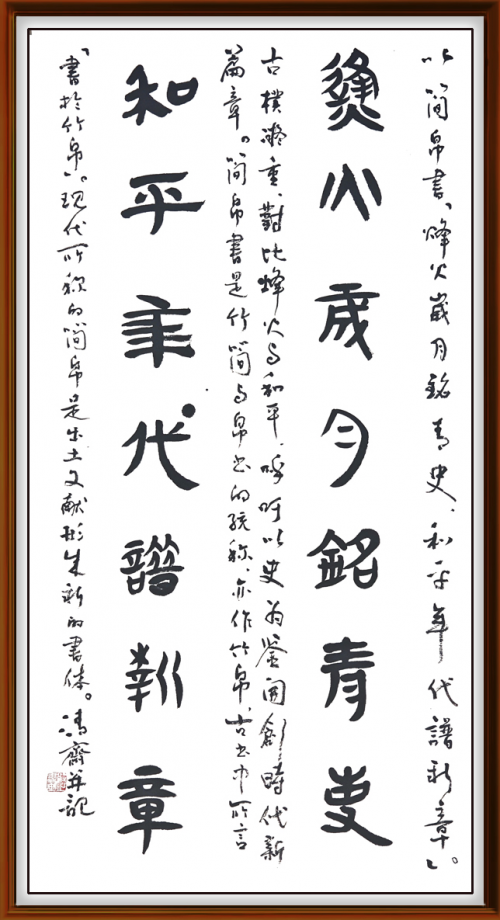 以簡帛書「烽火歲月銘青史、和平年代譜新章」。
烽火歲月銘青史
古樸凝重、對比烽火与和平、呼吁以史为鉴開創時代新
篇章。簡帛書是竹簡与帛书的统称、亦作竹帛、古书中所言
和平年代譜新章
「書於竹帛」。現代所称的简帛是出土文献形成新的書体。清齋并記